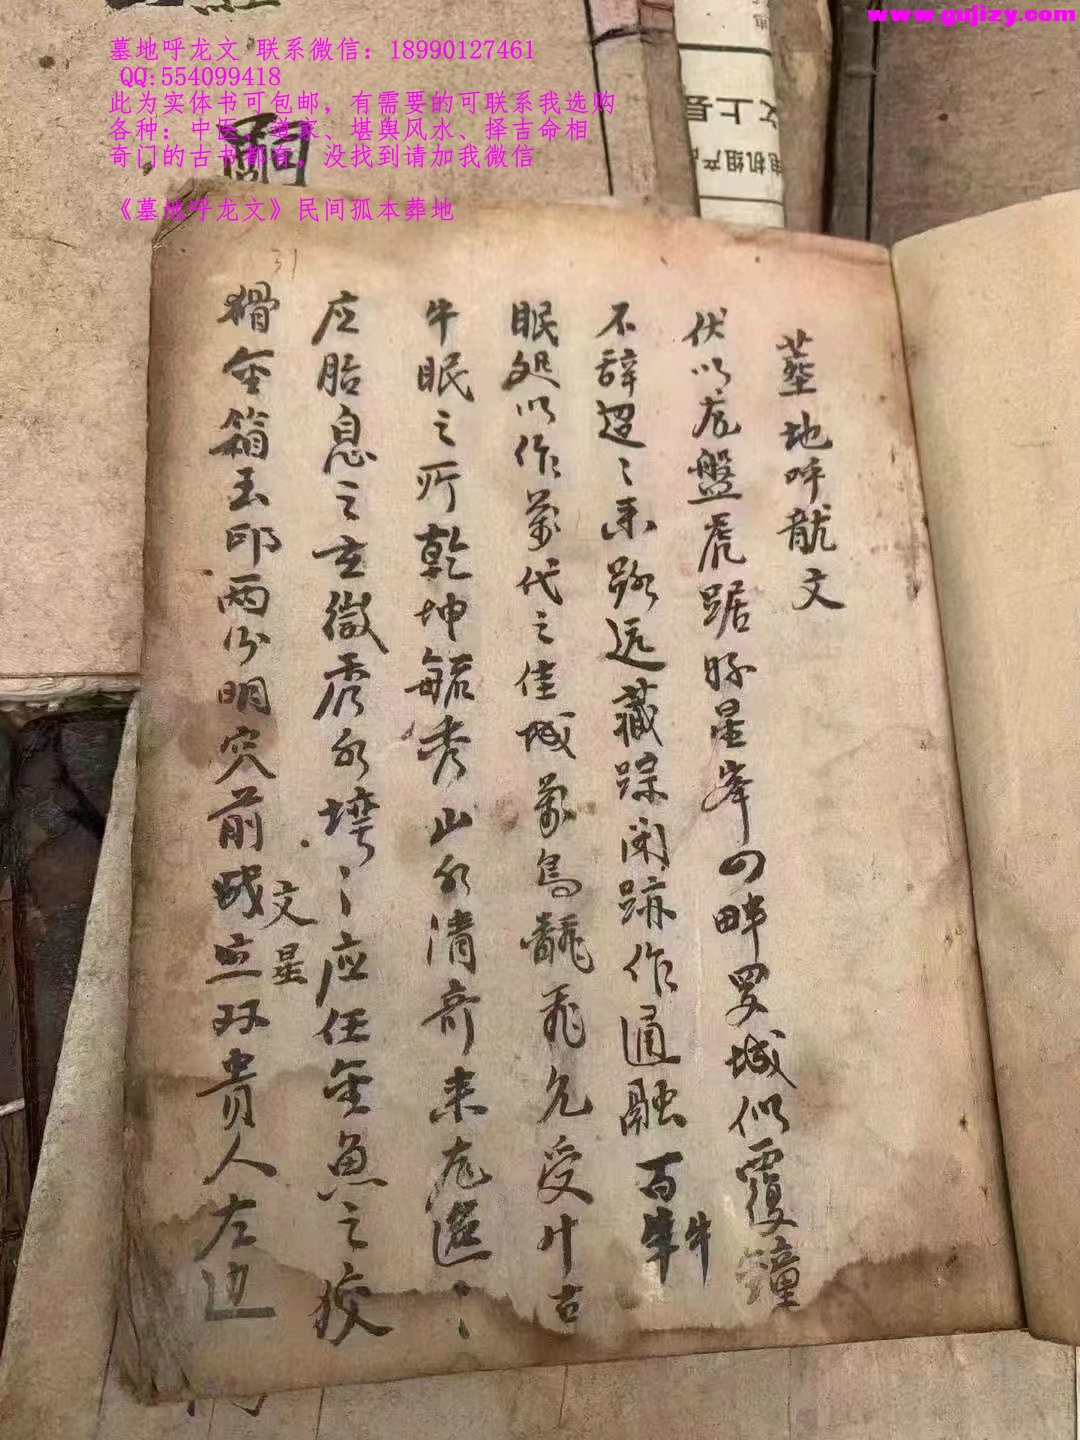 www.gujizy.com
墓地呼龙文 联系微信：18990127461
QQ:554099418
此为实体书可包邮，有需要的可联系我选购
各种：中医、道家、堪舆风水、择吉命相
奇门的古书都有，没找到请加我微信
《墓地呼龙文》民间孤本葬地
女上县
电机组产
31
墓地呼龍文
伏以龙盤虎踞 星峯四畔罗城似覆鐘
不辞迢〻来路远藏踪闭跡作通融百牛
眠处以作萬代之佳城萬鸟飜飛允受什古
牛眠之所乾坤毓秀山水清奇来龙迢〻
应胎息之玄微秀水塆〻应任金鱼之狡
猾金箱玉印两分明穴前 立双贵人左边
文星